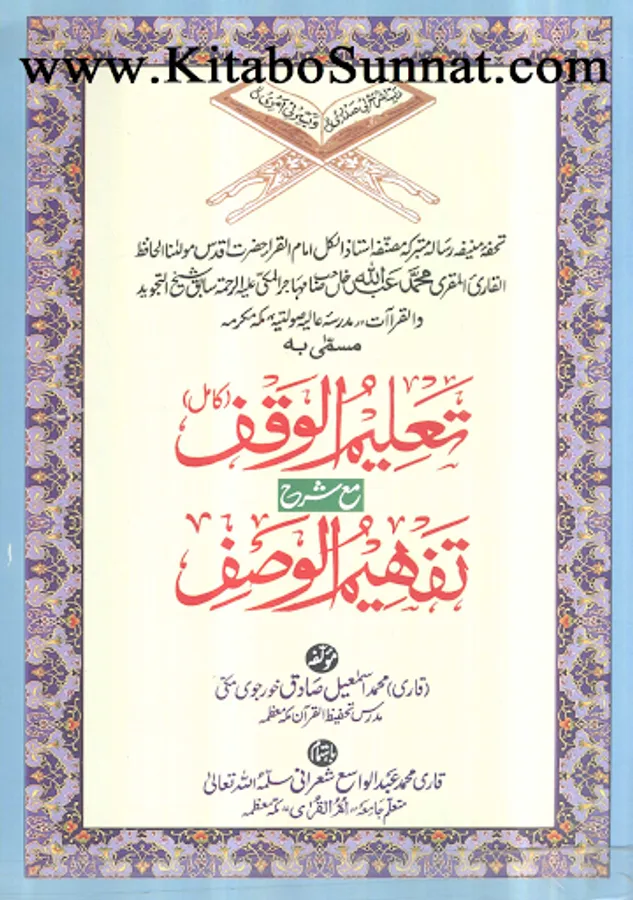 www.KitaboSunnat.com
رب اشرح لی صدری
ویسر لی امری
تحفۂ منیفہ رسالہ متبرکہ مصنّفہ استاذ الکل امام القراء حضرت اقدس مولٰنا الحافظ
القاری المقری محمد عبداللہ
مہاجر المکی علیہ الرحمۃ سابق شیخ التجوید
والقراآت "مدرسہ عالیہ صولتیہ" مکہ مکرمہ
مسمّٰی بہ
تعلیم الوقف (کامل)
مع شرح
تفہیم الوصف
مؤلفہ
(قاری) محمد اسمٰعیل صادق خورجوی مکی
مدرس تحفیظ القرآن مکہ معظمہ
باہتمام
قاری محمد عبدالواسع شعرانی سلّمہ اللہ تعالیٰ
متعلم جامعہ "اُمّ القُرٰی" مکہ معظمہ